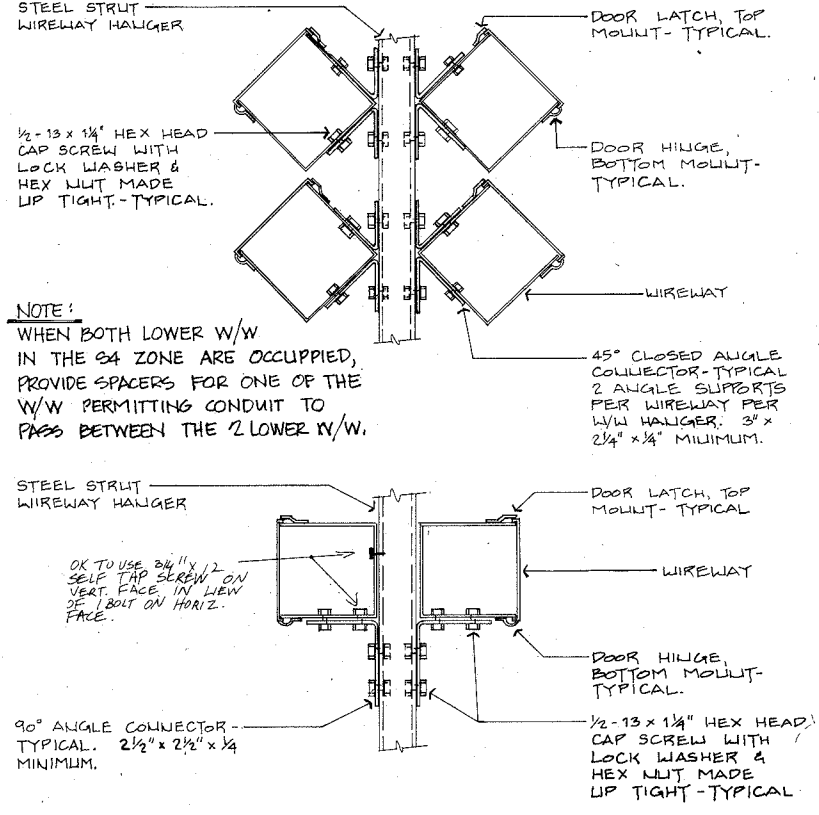 STEEL STRUT
WIREWAY HANGER
DOOR LATCH, TOP
MOUNT- TYPICAL.
1/2-13 x 1 1/4" HEX HEAD
CAP SCREW WITH
LOCK WASHER &
HEX NUT MADE
UP TIGHT.-TYPICAL.
DOOR HINGE,
BOTTOM MOUNT-
TYPICAL.
WIREWAY
NOTE:
WHEN BOTH LOWER W/W
IN THE S4 ZONE ARE OCCUPPIED,
PROVIDE SPACERS FOR ONE OF THE
W/W PERMITTING CONDUIT TO
PASS BETWEEN THE 2 LOWER W/W.
45° CLOSED ANGLE
CONNECTOR-TYPICAL
2 ANGLE SUPPORTS
PER WIREWAY PER
W/W HANGER. 3" x
2 1/4" x 1/4" MINIMUM.
STEEL STRUT
WIREWAY HANGER
DOOR LATCH, TOP
MOUNT- TYPICAL
OK TO USE 3/4" x 12
SELF TAP SCREW ON
VERT. FACE IN LIEW
OF 1 BOLT ON HORIZ.
FACE.
WIREWAY
DOOR HINGE,
BOTTOM MOUNT-
TYPICAL.
90° ANGLE CONNECTOR
TYPICAL. 2 1/2" x 2 1/2" x 1/4
MINIMUM.
1/2-13 x 1 1/4" HEX HEAD
CAP SCREW WITH
LOCK WASHER &
HEX NUT MADE
UP TIGHT-TYPICAL